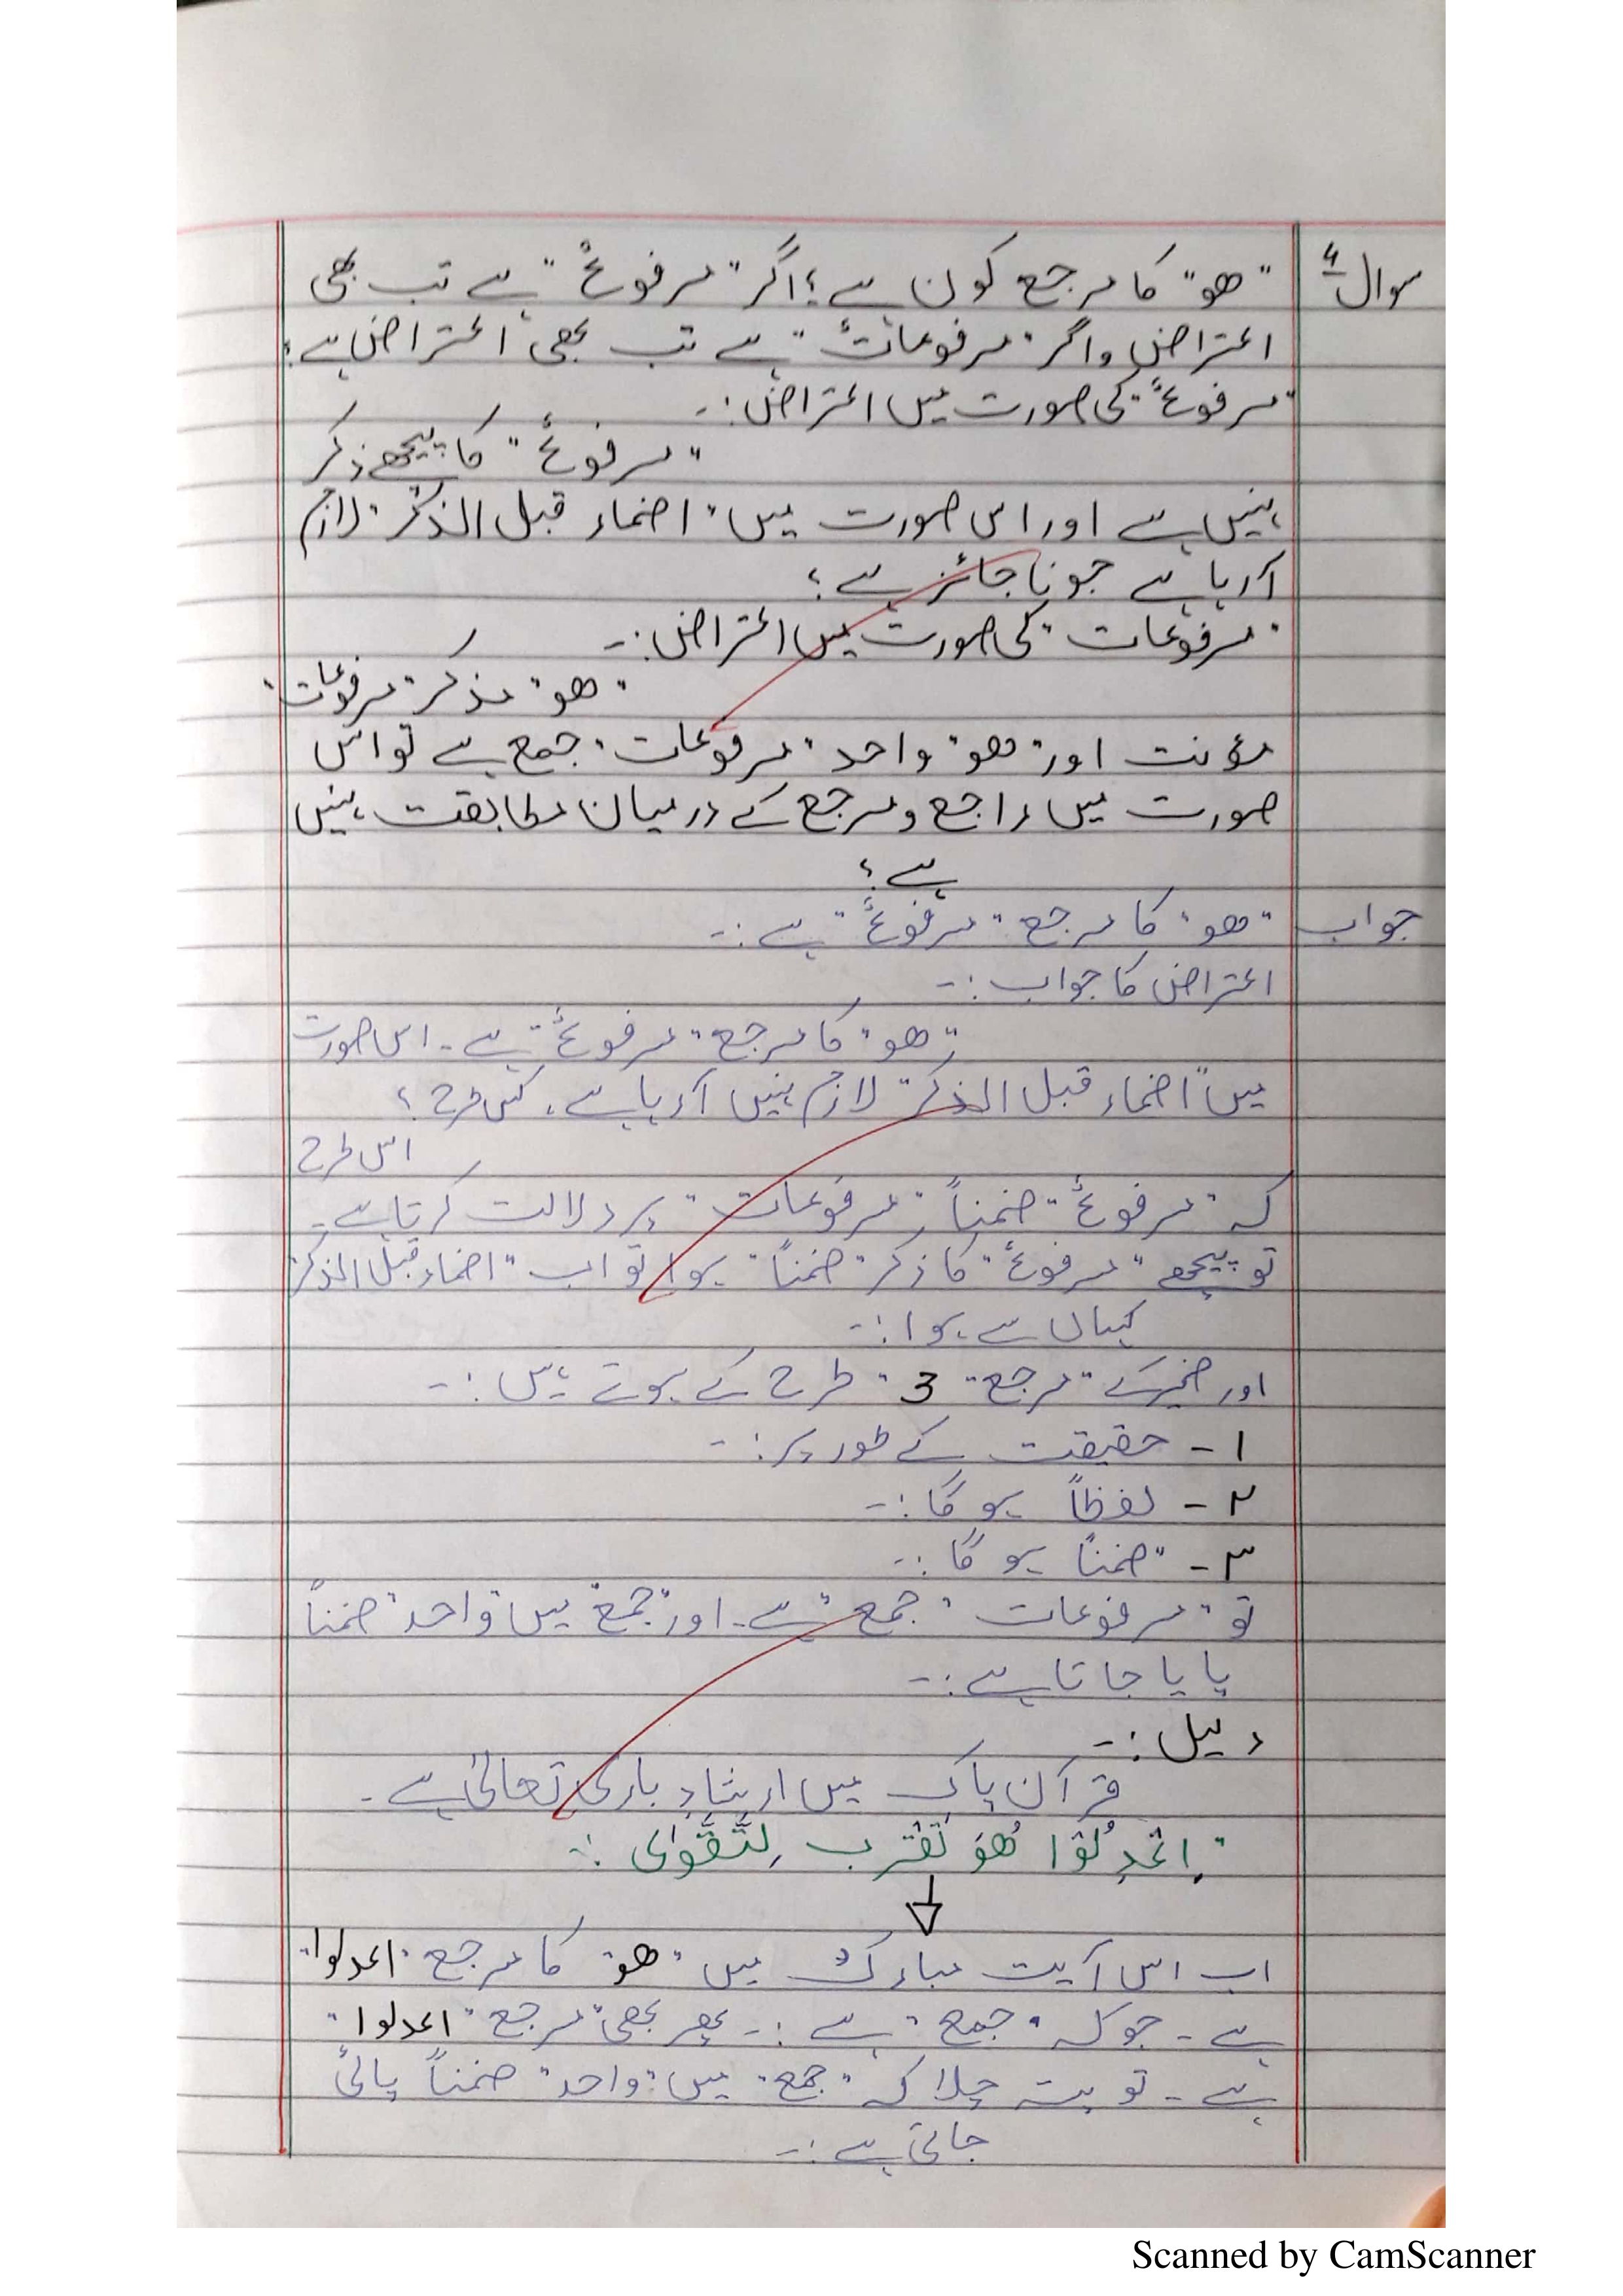 سوال ۴ "ھو" کا مرجع کون ہے؟ اگر "مرفوعٌ" ہے تب بھی
اعتراض و اگر "مرفوعاتٌ" ہے تب بھی اعتراض ہے؟
"مرفوعٌ" کی صورت میں اعتراض:۔
"مرفوعٌ" کا پیچھے ذکر
نہیں ہے اور اس صورت میں "اضمار قبل الذکر" لازم
آرہا ہے جو ناجائز ہے؟
"مرفوعات" کی صورت میں اعتراض:۔
"ھو" مذکر "مرفوعات"
مؤنث اور "ھو" واحد "مرفوعات" جمع ہے تو اس
صورت میں راجع و مرجع کے درمیان مطابقت نہیں
ہے؟
جواب "ھو" کا مرجع "مرفوعٌ" ہے:۔
اعتراض کا جواب:۔
"ھو" کا مرجع "مرفوعٌ" ہے۔ اس صورت
میں "اضمار قبل الذکر" لازم نہیں آرہا ہے۔ کس طرح؟
اس طرح
کہ "مرفوعٌ" ضمناً "مرفوعات" پر دلالت کرتا ہے۔
تو پیچھے "مرفوعٌ" کا ذکر "ضمناً" ہوا تو اب "اضمار قبل الذکر
کہاں سے ہوا:۔
اور ضمیر کے "مرجع" 3 طرح کے ہوتے ہیں:۔
۱- حقیقت کے طور پر:۔
۲- لفظاً ہو گا:۔
۳- "ضمناً ہو گا:۔
تو "مرفوعات" "جمع" ہے۔ اور "جمع" میں "واحد" ضمناً
پایا جاتا ہے:۔
دلیل:۔
قرآن پاک میں ارشادِ باری تعالیٰ ہے۔
"اِعْدِلُوْا ھُوَ اَقْرَب لِلتَّقْوٰی:۔
اب اس آیت مبارک میں "ھو" کا مرجع "اعدلوا"
ہے۔ جو کہ "جمع" ہے:۔ پھر بھی "مرجع" "اعدلوا"
ہے۔ تو پتہ چلا کہ "جمع" میں "واحد" ضمناً پائی
جاتی ہے:۔
Scanned by CamScanner